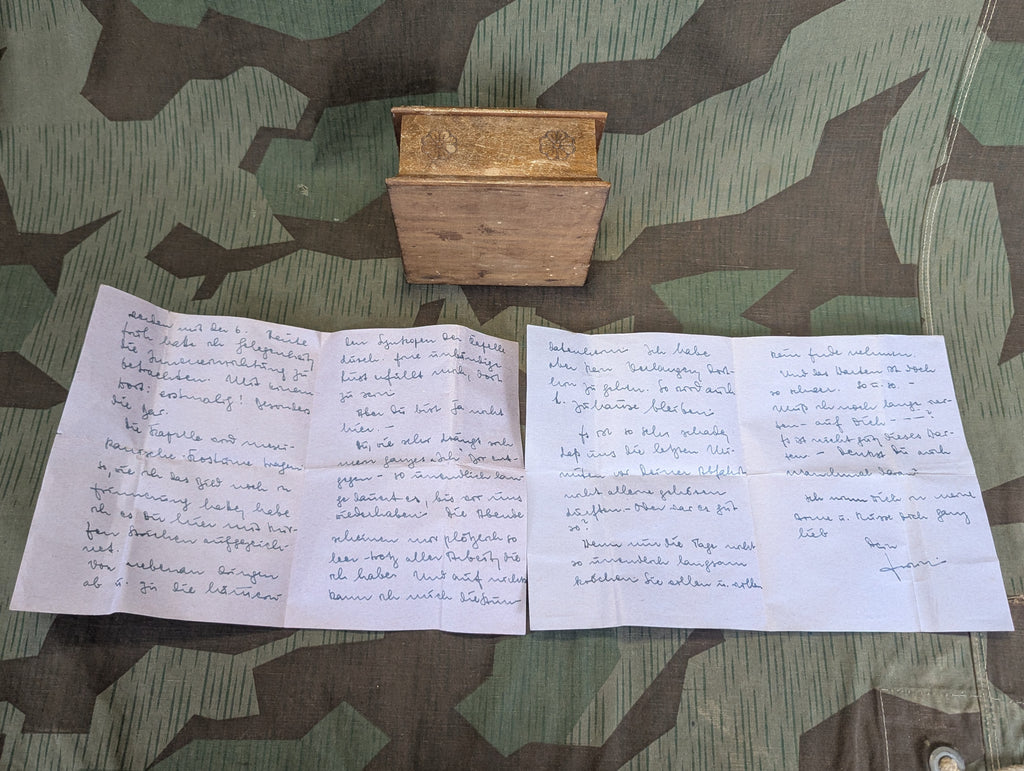 werden mit der 6. Heute
früh habe ich Gelegenheit
die Inneneinrichtung zu
betrachten. Mit einem
Wort: erstmalig! Besonders
die Bar.
Die Kapelle wird mexi-
kanische Kostüme tragen
so, wie ich das Bild noch in
Erinnerung habe, habe
ich es Dir hier mit kur-
zen Strichen aufgezeich-
net.
Von nebenan dringen
ab u. zu die
den Synkopen der Kapelle
durch. Eine unbändige
Lust erfüllt mich, dort
zu sein
Aber Du bist ja nicht
hier. –
Du, wie sehr drängt sich
mein ganzes Ich Dir ent-
gegen – so unendlich lan-
ge dauert es, bis wir uns
wiederhaben. Die Abende
scheinen mir plötzlich so
leer – trotz aller Arbeit, die
ich habe. Und auf nichts
kann ich mich
Ich habe
aber kein Verlangen, dort-
hin zu gehen. So wird auch
zuhause bleiben
Es ist so sehr schade,
daß uns die letzten Mi-
nuten vor Deiner Abfahrt
nicht alleine gehören
durften – Oder war es gut
so?
Wenn nur die Tage nicht
so unendlich langsam
kröchen. Sie wollen u. wollen
kein Ende nehmen
Und das Warten ist doch
so schwer. So – so –
Muß ich noch lange war-
ten – auf Dich – – –?
Es ist nicht gut, dieses War-
ten – Denkst Du auch
manchmal daran
Ich nehme Dich in meine
Arme u. küsse Dich ganz
lieb
Dein